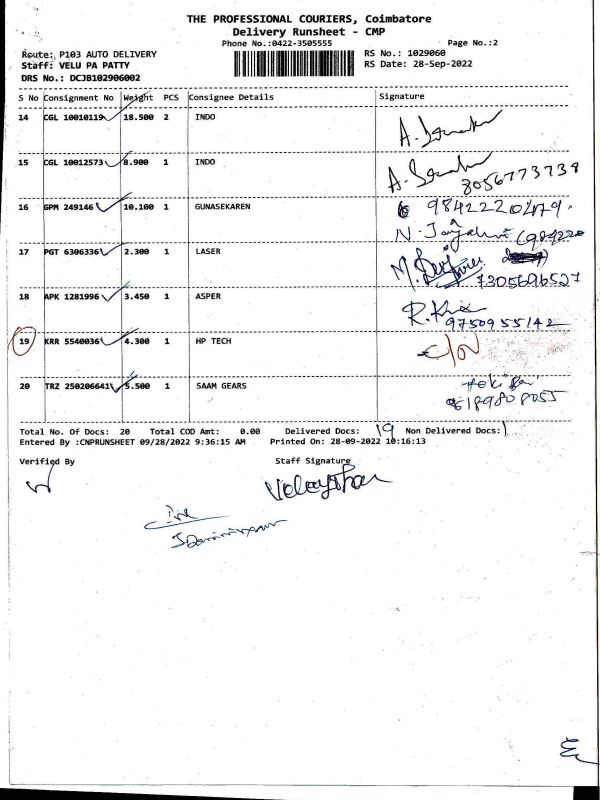 THE PROFESSIONAL COURIERS, Coimbatore
Delivery Runsheet - CMP
Phone No.:0422-3505555 Page No.:2
Route: P103 AUTO DELIVERY RS No.: 1029060
Staff: VELU PA PATTY RS Date: 28-Sep-2022
DRS No.: DCJB102906002
S No Consignment No Weight PCS Consignee Details Signature
14 CGL 10010119 18.500 2 INDO
15 CGL 10012573 8.900 1 INDO
8056773738
16 GPM 249146 10.100 1 GUNASEKAREN
17 PGT 6306336 2.300 1 LASER
7305696527
18 APK 1281996 3.450 1 ASPER
9750955142
19 KRR 5540036 4.300 1 HP TECH
20 TRZ 250206641 5.500 1 SAAM GEARS
Total No. Of Docs: 20 Total COD Amt: 0.00 Delivered Docs: 19 Non Delivered Docs: 1
Entered By :CNPRUNSHEET 09/28/2022 9:36:15 AM Printed On: 28-09-2022 10:16:13
Verified By Staff Signature